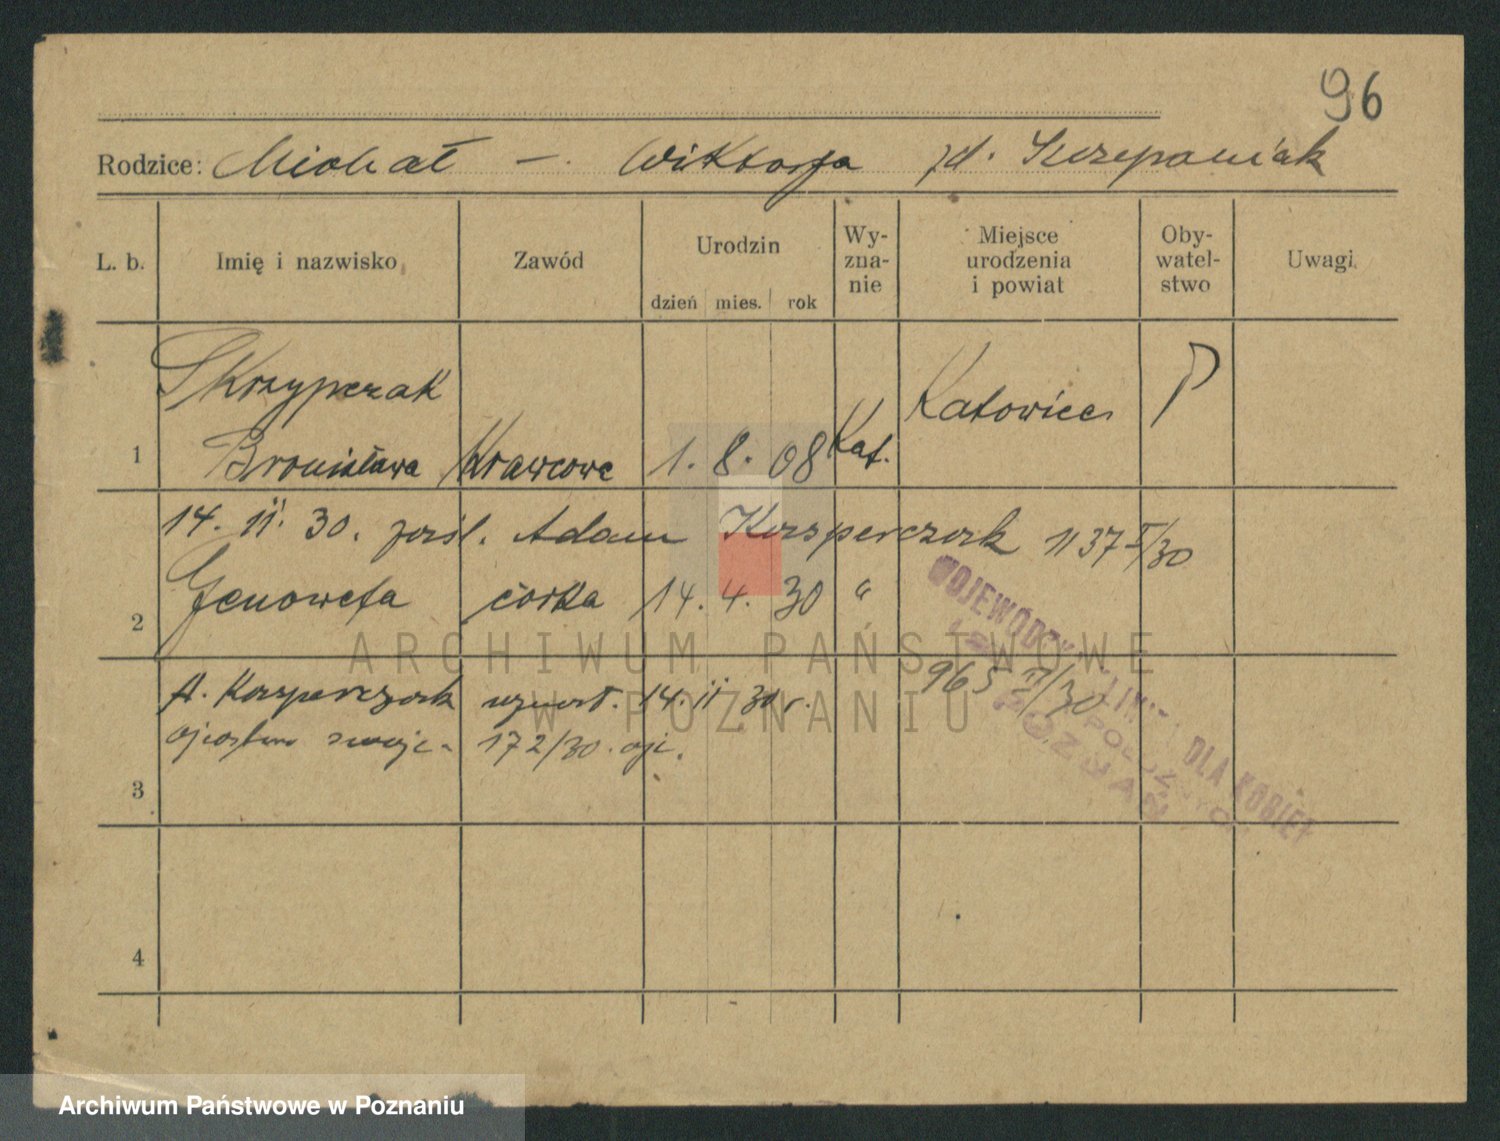 96
Rodzice: Michał — Wiktorja zd. Szczepaniak
L. b. Imię i nazwisko Zawód Urodzin Wy-zna-nie Miejsce urodzenia i powiat Oby-watel-stwo Uwagi
dzień mies. rok
Skrzypczak Katowice P
1 Bronisława Krawcowa 1. 8. 08 Kat.
14. II. 30. zaśl. Adam Kasperczak 1137 I/30
2 Genowefa córka 14. 4. 30 "
A. Kasperczak 14. II 30 r. 965 II/30
172/30
3
4
WOJEWÓDZKA DLA KOBIET
POZNAŃ
ARCHIWUM PAŃSTWOWE
W POZNANIU
Archiwum Państwowe w Poznaniu